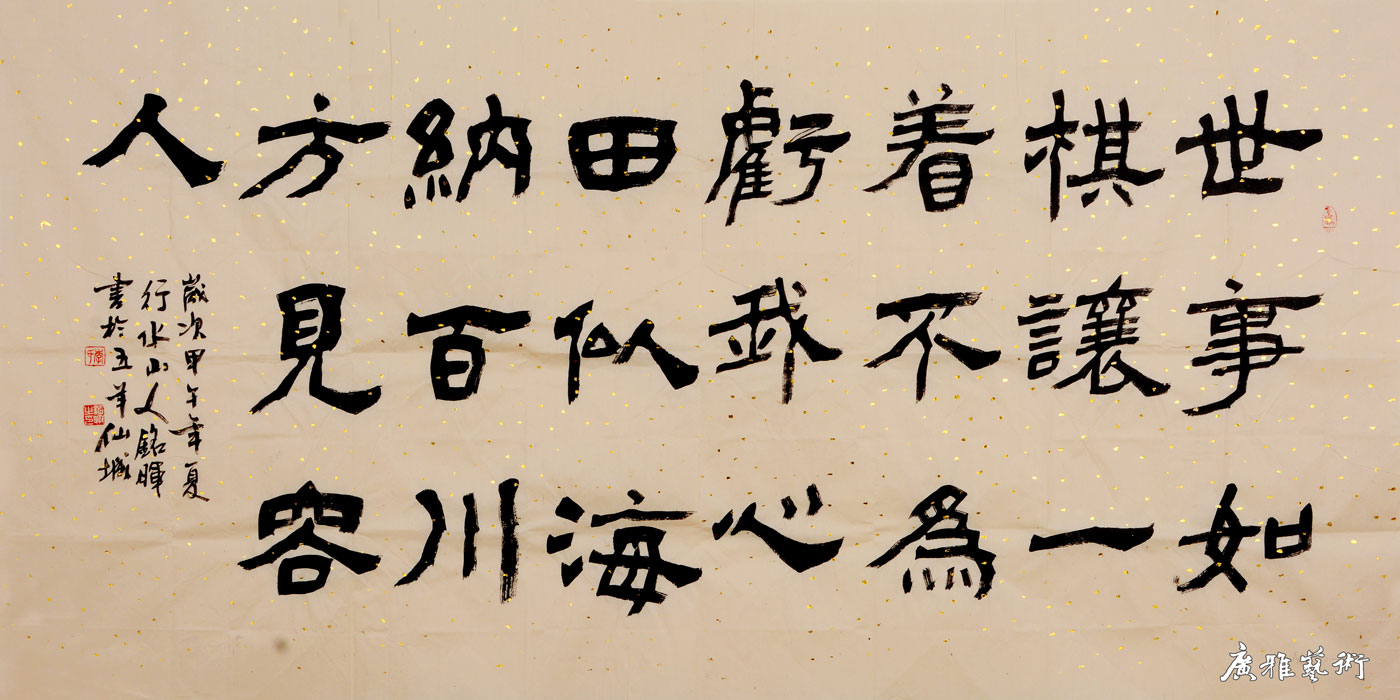 世事如
棋讓一
着不為
虧我心
田似海
納百川
方見容
人
歲次甲午年夏
行水山人銘暉
書於五羊仙城
廣雅藝術